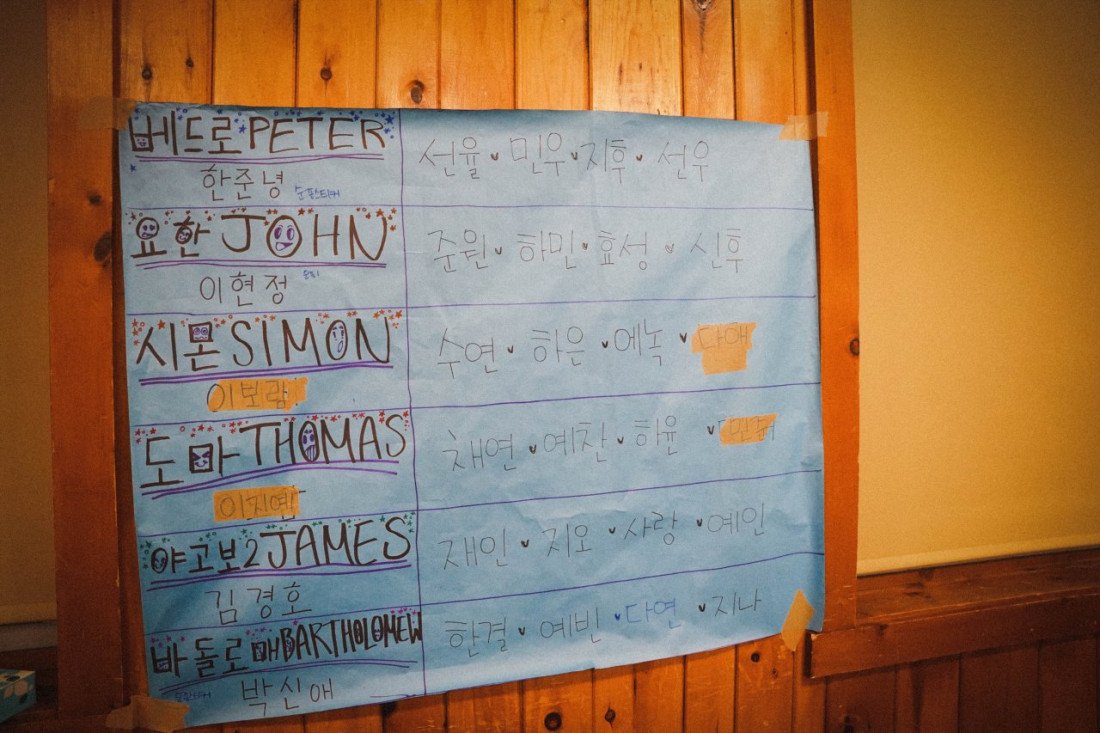 베드로 PETER
한준녕
선율 민우 지후 선우
요한 JOHN
이현정
준원 하민 효성 신후
시몬 SIMON
이보람
수연 하은 에녹
도마 THOMAS
이지연
채연 예찬 하윤
야고보2 JAMES
김경호
재인 지오 사랑 예인
바돌로매 BARTHOLOMEW
박신애
한결 예빈 다연 지나